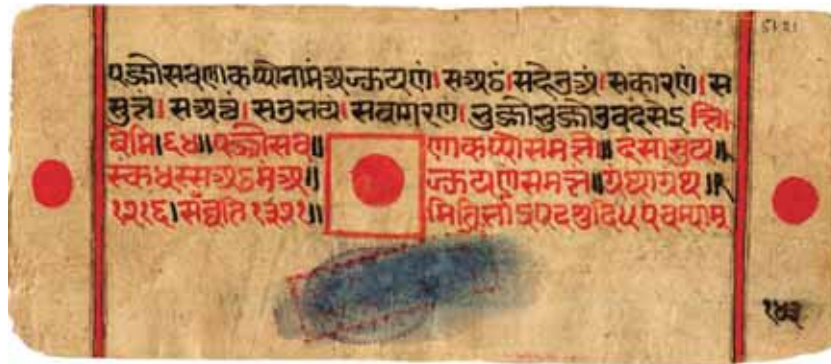 5121
पज्जोसवणाकप्पोनामंअज्झयणं।सअठं।सहेतुअं।सकारणं।स
सुत्तं।सअत्थं।सउभयं।सवागरणं।भुज्जोभुज्जोउवदंसेइ त्ति।
बेमि।६४॥पज्जोसव॥ णाकप्पोसमत्तो॥दसासुय॥
स्कंधस्सअठमंअ॥ ज्झयणंसमत्तं॥ग्रंथाग्रंथ॥
१२१६।संवति १३२१॥ सुदि५पंचम्याम्